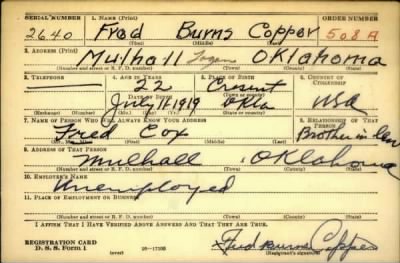 SERIAL NUMBER 1. NAME (Print) ORDER NUMBER
2640 Fred Burns Copper 508 A
(First) (Middle) (Last)
2. ADDRESS (Print)
Mulhall Logan Oklahoma
(Number and street or R. F. D. number) (Town) (County) (State)
3. TELEPHONE 4. AGE IN YEARS 5. PLACE OF BIRTH 6. COUNTRY OF CITIZENSHIP
22 Cresent
DATE OF BIRTH (Town or county)
July 11-1919 Okla USA
(Exchange) (No.) (Mo.) (Day) (Yr.) (State or country)
7. NAME OF PERSON WHO WILL ALWAYS KNOW YOUR ADDRESS 8. RELATIONSHIP OF THAT PERSON
Fred Cox Brother in law
(Mr., Mrs., Miss) (First) (Middle) (Last)
9. ADDRESS OF THAT PERSON
Mulhall Oklahoma
(Number and street or R. F. D. number) (Town) (County) (State)
10. EMPLOYER'S NAME
Unemployed
11. PLACE OF EMPLOYMENT OR BUSINESS
(Number and street or R. F. D. number) (Town) (County) (State)
I AFFIRM THAT I HAVE VERIFIED ABOVE ANSWERS AND THAT THEY ARE TRUE.
REGISTRATION CARD
D. S. S. Form 1 (over) 16—17105 Fred Burns Copper
(Registrant's signature)